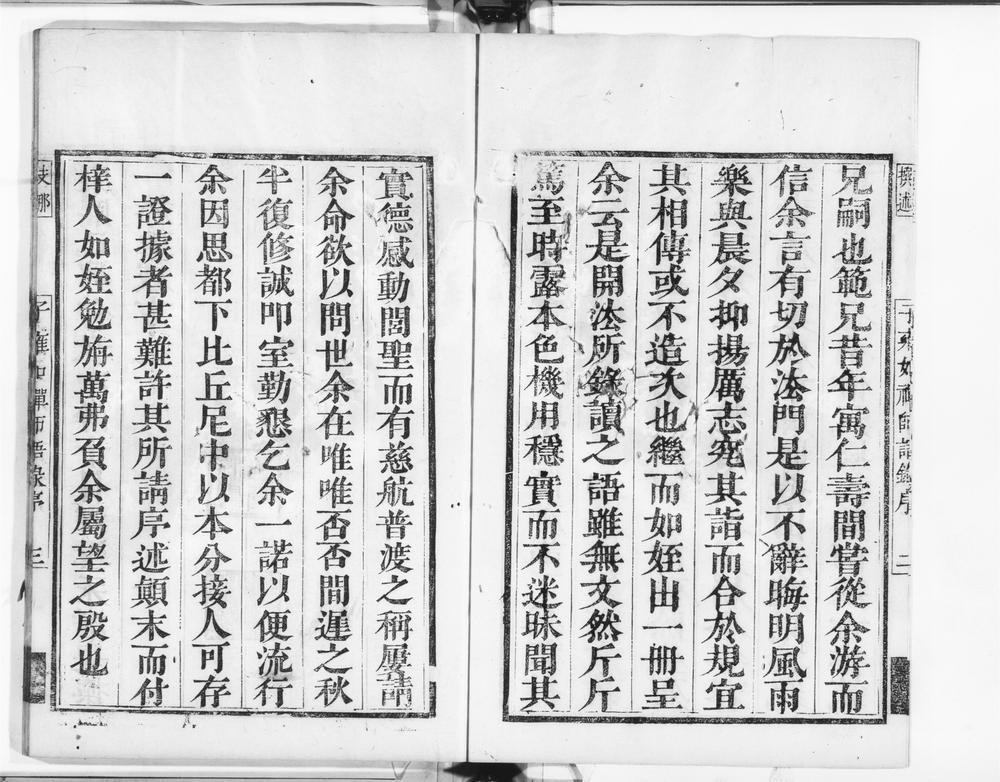 撰述
子雍如禪師語錄序
二
兄嗣也範兄昔年寓仁壽間嘗從余游而
信余言有切於法門是以不辭晦明風雨
樂與晨夕抑揚厲志究其詣而合於規宜
其相傳或不造次也繼而如姪出一冊呈
余云是開法所錄讀之語雖無文然斤斤
篤至時露本色機用穩實而不迷昧聞其
實德感動閭聖而有慈航普渡之稱屢請
余命欲以問世余在唯唯否否間遲之秋
半復修誠叩室勤懇乞余一諾以便流行
余因思都下比丘尼中以本分接人可存
一證據者甚難許其所請序述顛末而付
梓人如姪勉旃萬弗負余屬望之殷也
支那
子雍如禪師語錄序
三